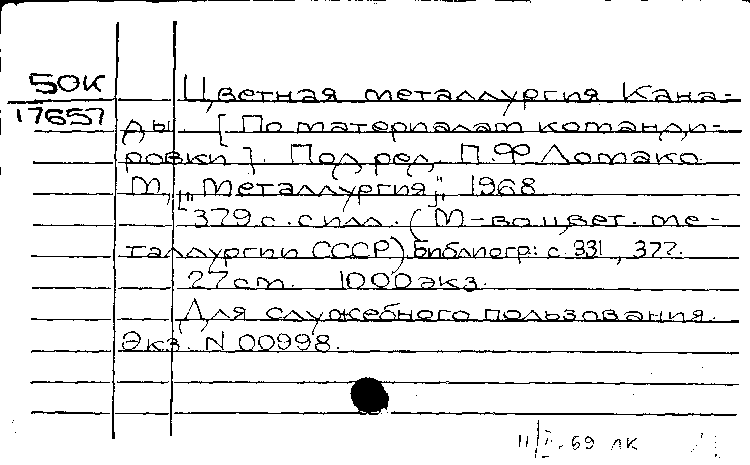 50К
17657
Цветная металлургия Кана-
ды [По материалам команди-
ровки]. Под ред. П.Ф. Ломако
М., "Металлургия", 1968
379 с. с илл. (М-во цвет. ме-
таллургии СССР) Библиогр: с. 331, 377.
27 см. 1000 экз.
Для служебного пользования.
Экз. N 00998.
69 ЛК